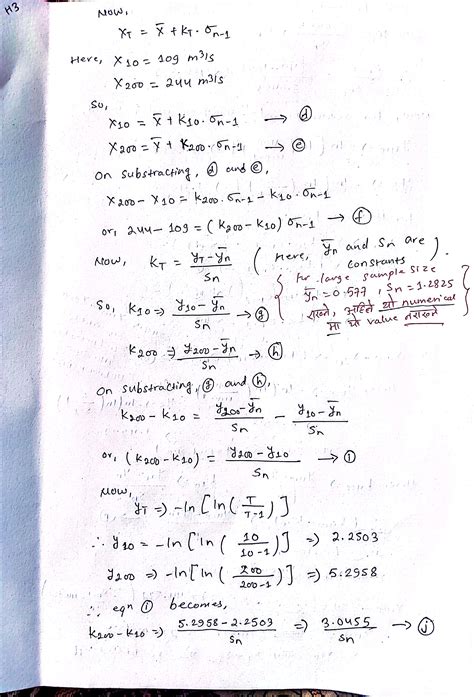 H3
Now,
X_T = x̄ + K_T · σ_{n-1}
Here, X_10 = 109 m³/s
X_200 = 244 m³/s
So,
X_10 = x̄ + K_10 · σ_{n-1} → ⓓ
X_200 = x̄ + K_200 · σ_{n-1} → ⓔ
On substracting, ⓓ and ⓔ,
X_200 - X_10 = K_200 · σ_{n-1} - K_10 · σ_{n-1}
or, 244 - 109 = (K_200 - K_10) σ_{n-1} → ⓕ
Now, K_T = (y_T - ȳ_n) / S_n ( Here, ȳ_n and S_n are constants )
{ for large sample size
ȳ_n = 0.577, S_n = 1.2825
राख्ने, अहिले यो numerical
मा यो value नराख्ने }
So, K_10 ⇒ (y_10 - ȳ_n) / S_n → ⓖ
K_200 ⇒ (y_200 - ȳ_n) / S_n → ⓗ
On substracting, ⓖ and ⓗ,
K_200 - K_10 = (y_200 - ȳ_n) / S_n - (y_10 - ȳ_n) / S_n
or, (K_200 - K_10) = (y_200 - y_10) / S_n → ⓘ
Now,
y_T ⇒ -ln [ ln ( T / (T-1) ) ]
∴ y_10 = -ln [ ln ( 10 / (10-1) ) ] ⇒ 2.2503
y_200 ⇒ -ln [ ln ( 200 / (200-1) ) ] ⇒ 5.2958
∴ eqn ⓘ becomes,
K_200 - K_10 ⇒ (5.2958 - 2.2503) / S_n ⇒ 3.0455 / S_n → ⓙ